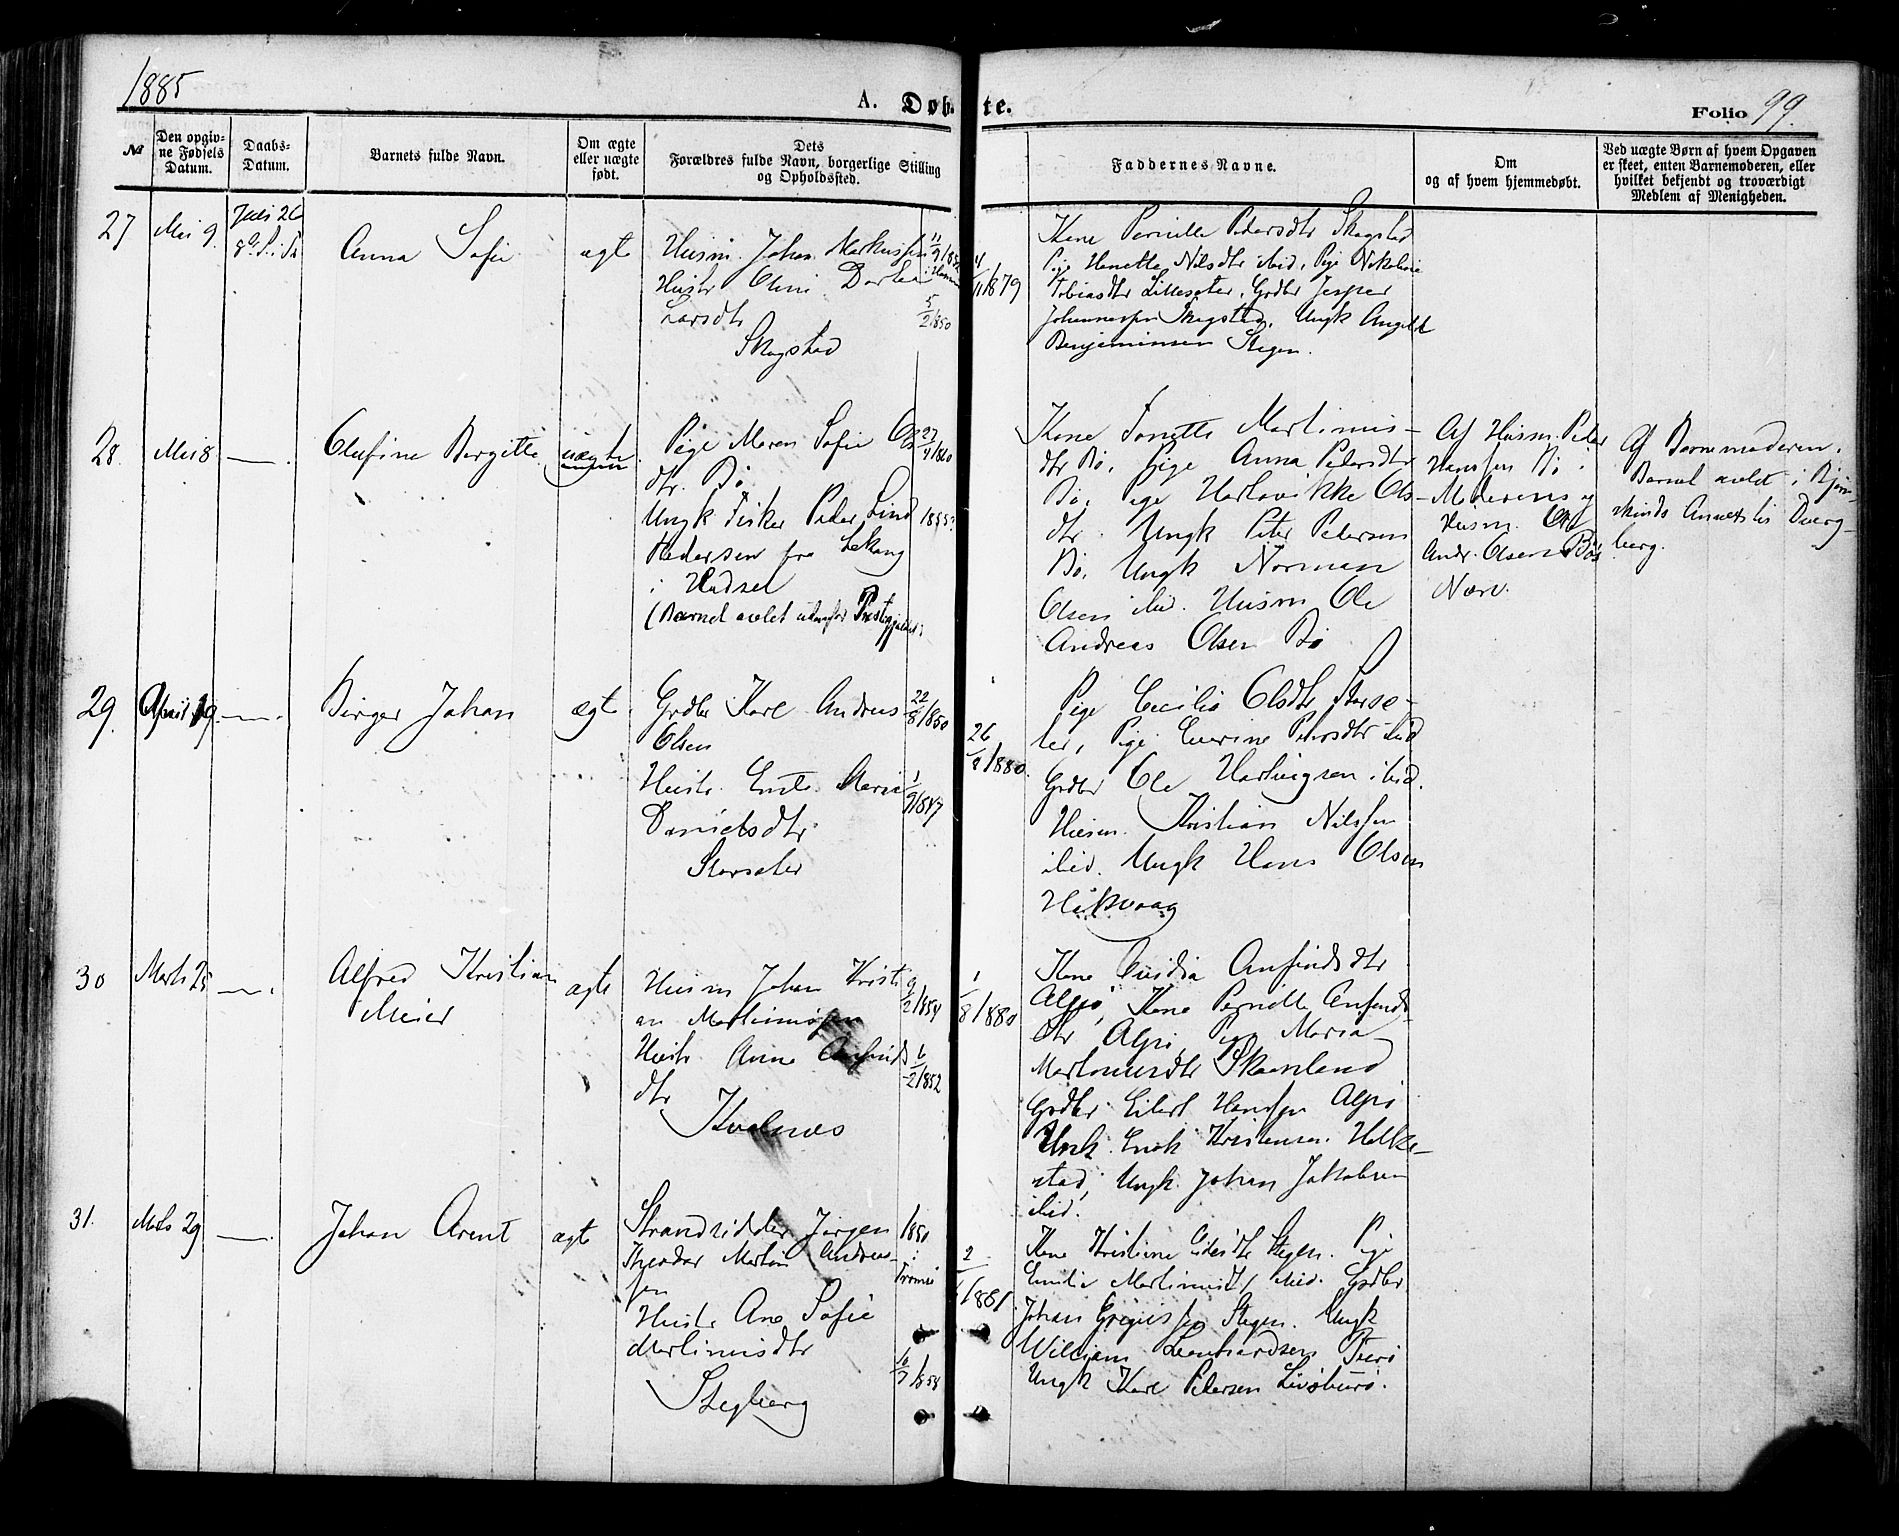 1885
A. Døbte.
Folio 99.
№
Den opgivne Fødsels Datum.
Daabs-Datum.
Barnets fulde Navn.
Om ægte eller uægte født.
Dets Forældres fulde Navn, borgerlige Stilling og Opholdssted.
Faddernes Navne.
Om og af hvem hjemmedøbt.
Ved uægte Børn af hvem Opgaven er skeet, enten Barnemoderen, eller hvilket bekjendt og troværdigt Medlem af Menigheden.
27
Mai 9.
Juli 26
Anna Sofie
ægte
Husm. Johan Markussen
Hustr. Olini
Larsdtr
Skogstad
5/2 1850
1879
Kone Pernille Pedersdtr Skogstad
Pige Hanette Nilsdtr ibid, Pige Nikoline
Tobiasdtr Lilleseter, Grdbr Jesper
Johannessen Skogstad, Ungk
Benjaminsen Stegen.
28.
Mai 8
—
Olufine Bergitte
uægte
Pige Maren Sofie Ols
dtr. Bø
27/4 1860
Ungk Fisker Peder Lind
1855
Pedersen fra
i Hadsel
(Barnet avlet udenfor Præstegjeldet)
Kone Tonette Martinus-
dtr Bø, Pige Anna Pedersdtr
Bø, Pige Hartvikke Ols-
dtr. Ungk Peter Pedersen
Bø, Ungk Norman
Olsen ibid. Husm Ole
Andreas Olsen Bø
Af Husm. Peder
Hanssen Bø i
Moderens og
Husm. Ole
Andr. Olsen Bøs
Nærv.
Af Barnemoderen.
Barnet avlet i Bjørn-
skinds Annex til Dverg-
berg.
29.
April 19
—
Birger Johan
ægte
Grdbr Karl Andreas
Olsen
22/8 1850
Hustr. Maria
Danielsdtr
1/9 1847
Storseter
26/8 1880.
Pige Cecilia Olsdtr Storse-
ter, Pige Pedersdtr ibid
Grdbr Ole Hartvigsen ibid.
Husm. Kristian Nilssen
ibid. Ungk Hans Olsen
Haakvaag
30
Marts 25
—
Alfred Kristian
Meier
ægte
Husm Johan Kristi
an Martinussen
9/2 1854
Hustr. Anna Anfinds
dtr
1852
Kvalnes
1/8 1880
Kone Anfindsdtr
Alpøi, Kone Pernille Anfinds-
dtr Alpøi, Maria
Martinusdtr Skaanland
Grdbr Eilert Hanssen Alpøi
Ungk. Enok Kristensen Helke-
stad, Ungk. Johan Jakobsen
ibid.
31.
Marts 29
—
Johan Arent
ægte
Strandsidder Jørgen
Theodor Martin Andreas-
sen
1850
i
Tromsø
Hustr Ane Sofie
Martinusdtr
Stegberg
2/ 1881
Kone Kristine Stegen. Pige
Emilie Martinusdtr ibid. Grdbr
Johan Stegen. Ungk
William Leonhardsen
Ungk Karl Pedersen